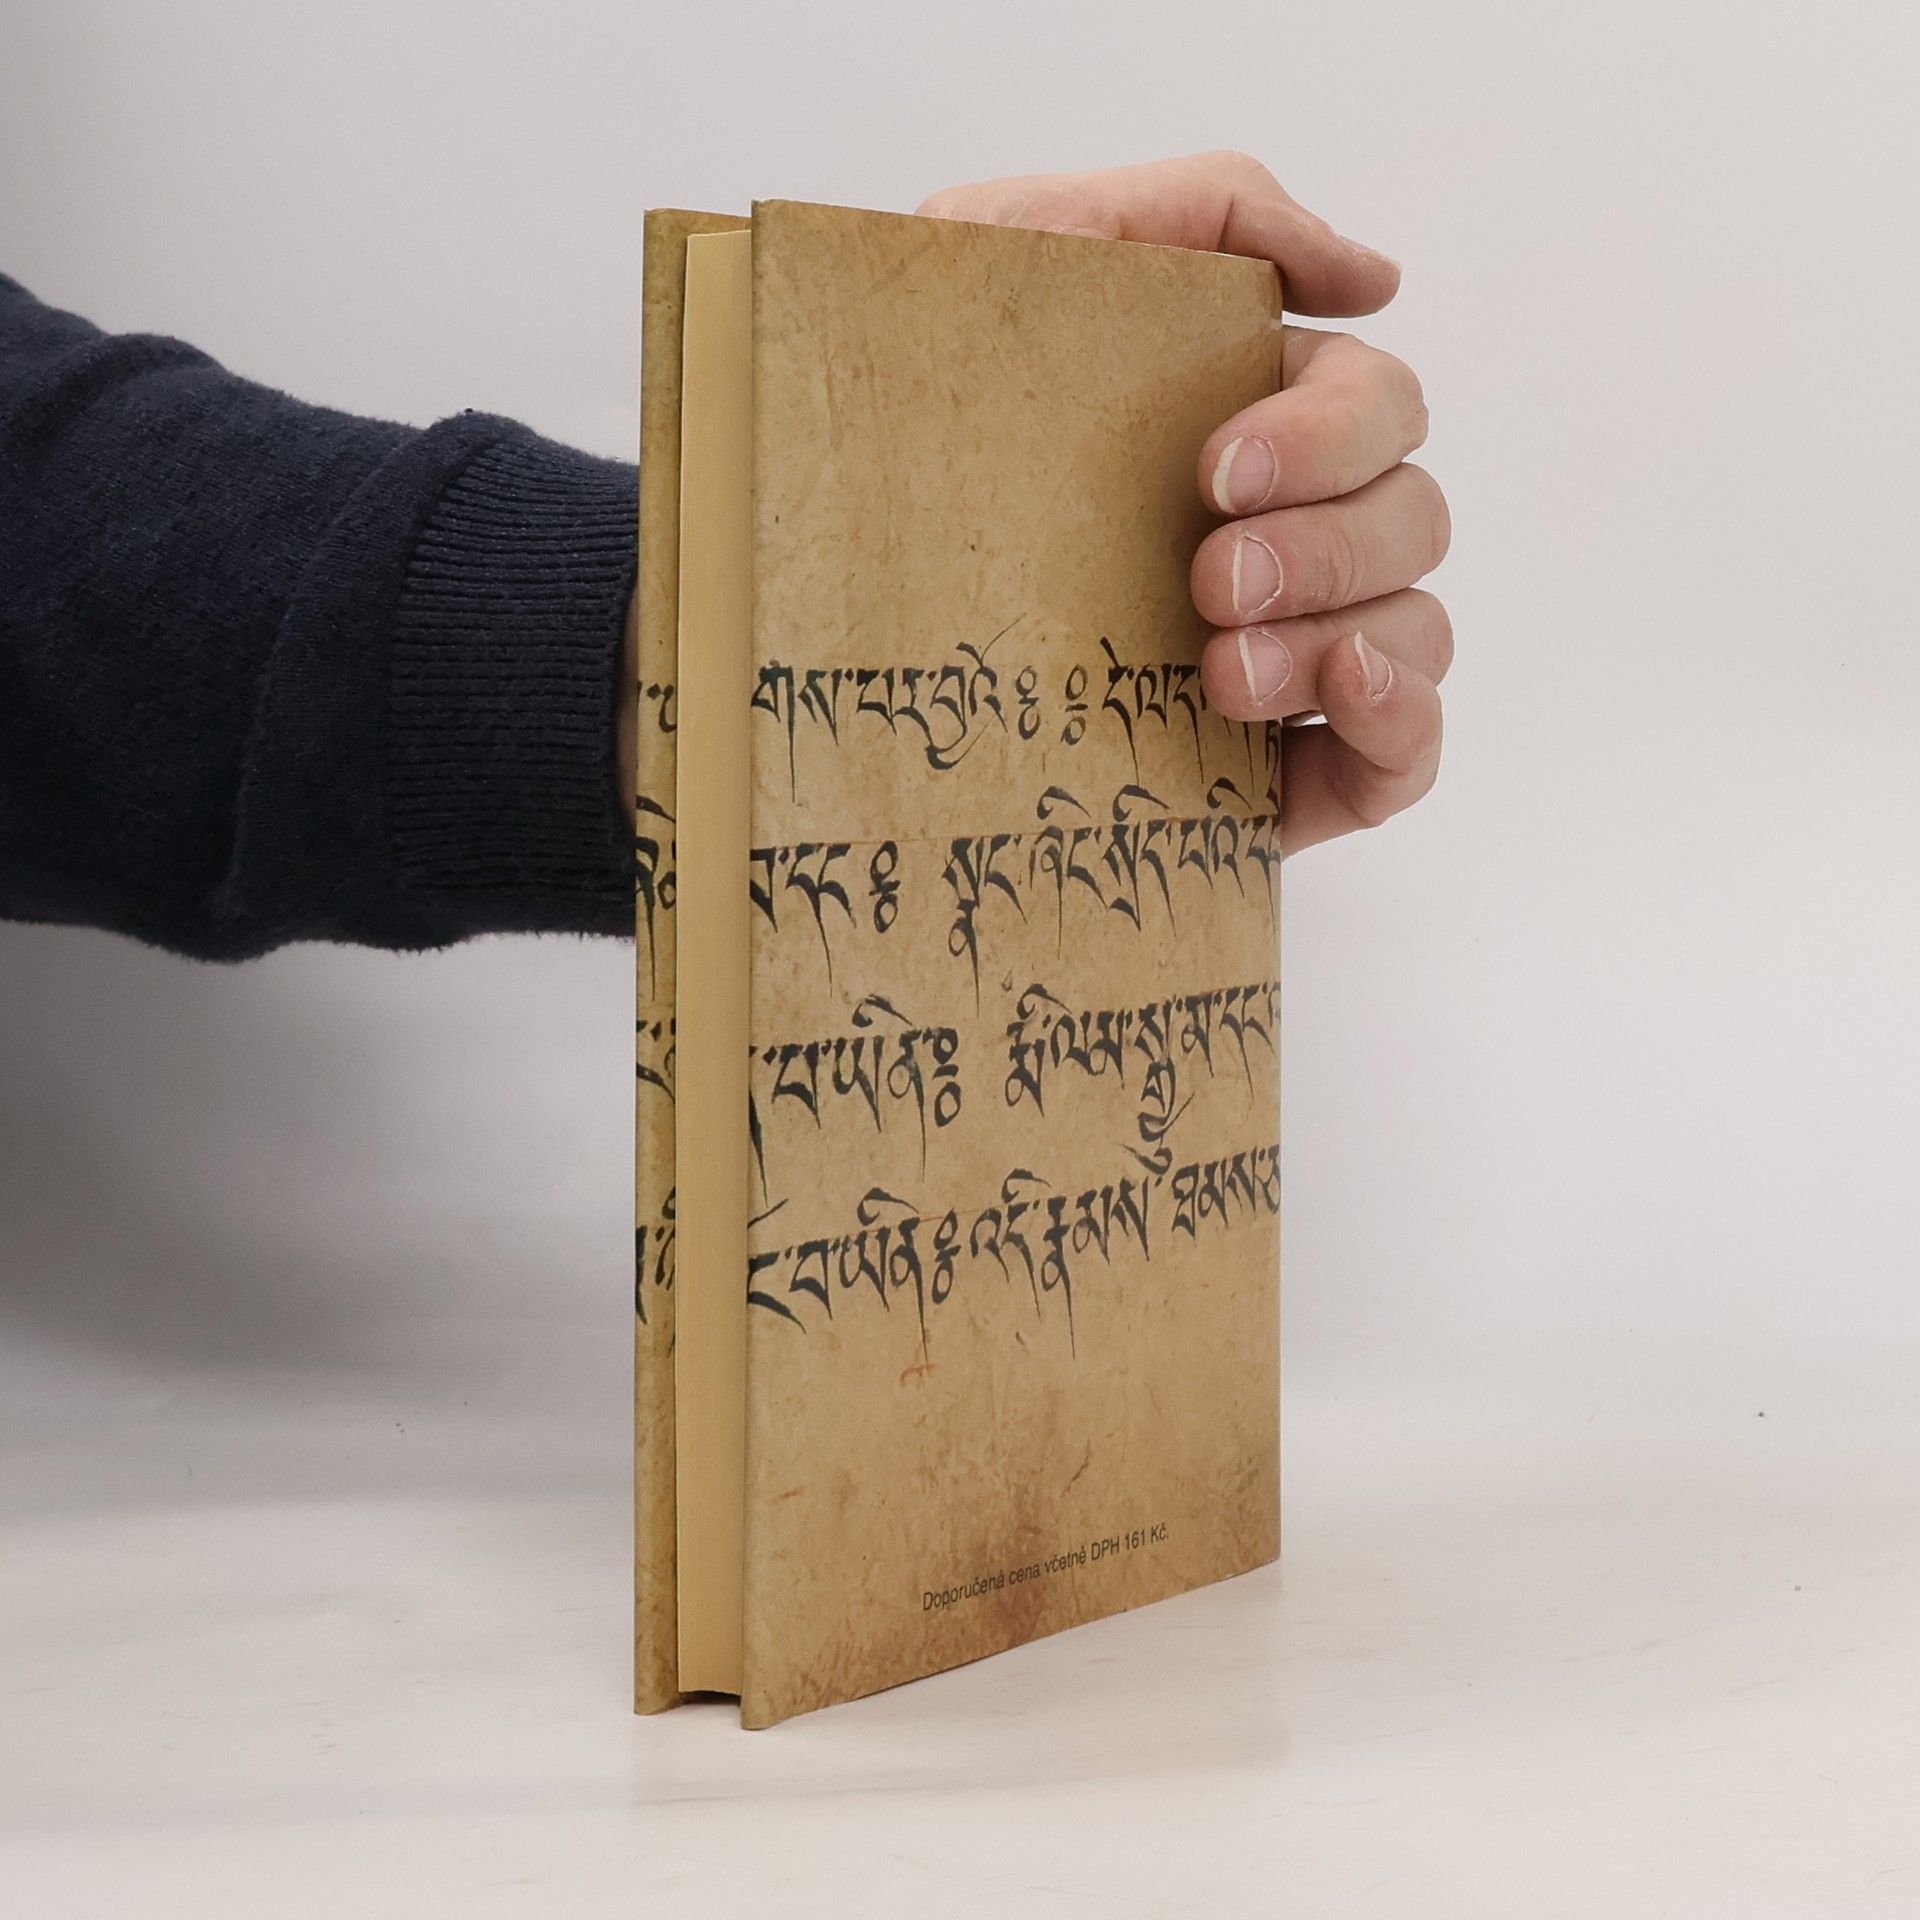 གས་པར་བྱའོ༔ ༔ དེ་ལ་
བ་དང༔ སྣང་ཞིང་སྲིད་པའི་
བ་ཡིན༔ རྨི་ལམ་སྒྱུ་མ་དང་
ང་བ་ཡིན༔ འདི་རྣམས་ཐམས་
Doporučená cena včetně DPH 161 Kč.